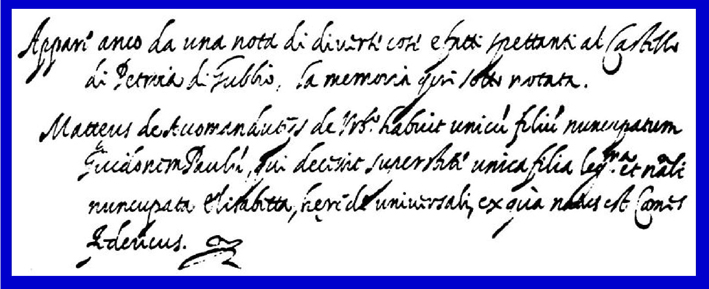 Appari anco da una nota di diversi cose e fatti spettanti al Castello
di Petroia di Gubbio, la memoria qui sotto notata.
Matteus de Accomandutijs de habuit unicū filiū nuncupatum
Guidonem Paulū, qui decessit superstite unica filia leg.ma et nāli
nuncupata Elisabetta, herede universali, ex qua natus est Comes
Federicus.